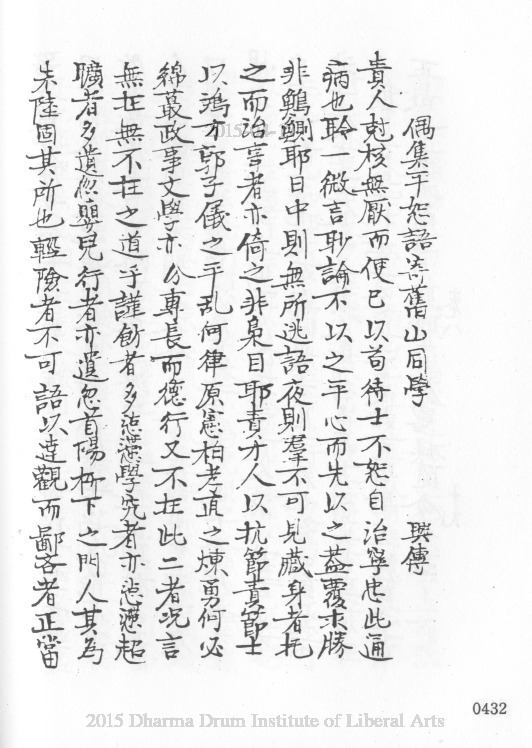 偶集平恕語寄舊山同學　興儔
貴人剋核無厭而便已以苟待士不恕自治寧忠此通
病也聆一微言聊論不以之平心而先以之蓋覆求勝
非鷦鷯耶日中則無所逃語夜則羣不可見藏身者托
之而治事者亦倚之非梟目耶責才人以抗節責節士
以鴻才郭子儀之平乱何律原憲柏孝直之煉勇何必
綿蕞政事文學亦分專長而德行又不在此二者況言
無在無不在之道乎謹飭者多訾學究者亦訾超
曠者多遺忽嬰兒行者亦遺忽首陽柳下之門人其為
朱陸固其所也輕險者不可語以達觀而鄙吝者正當
0432
2015 Dharma Drum Institute of Liberal Arts